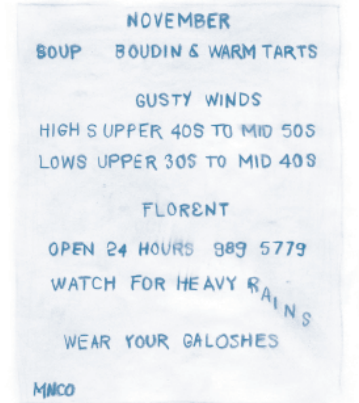 NOVEMBER
SOUP BOUDIN & WARM TARTS
GUSTY WINDS
HIGHS UPPER 40S TO MID 50S
LOWS UPPER 30S TO MID 40S
FLORENT
OPEN 24 HOURS 989 5779
WATCH FOR HEAVY RAINS
WEAR YOUR GALOSHES
MNCO